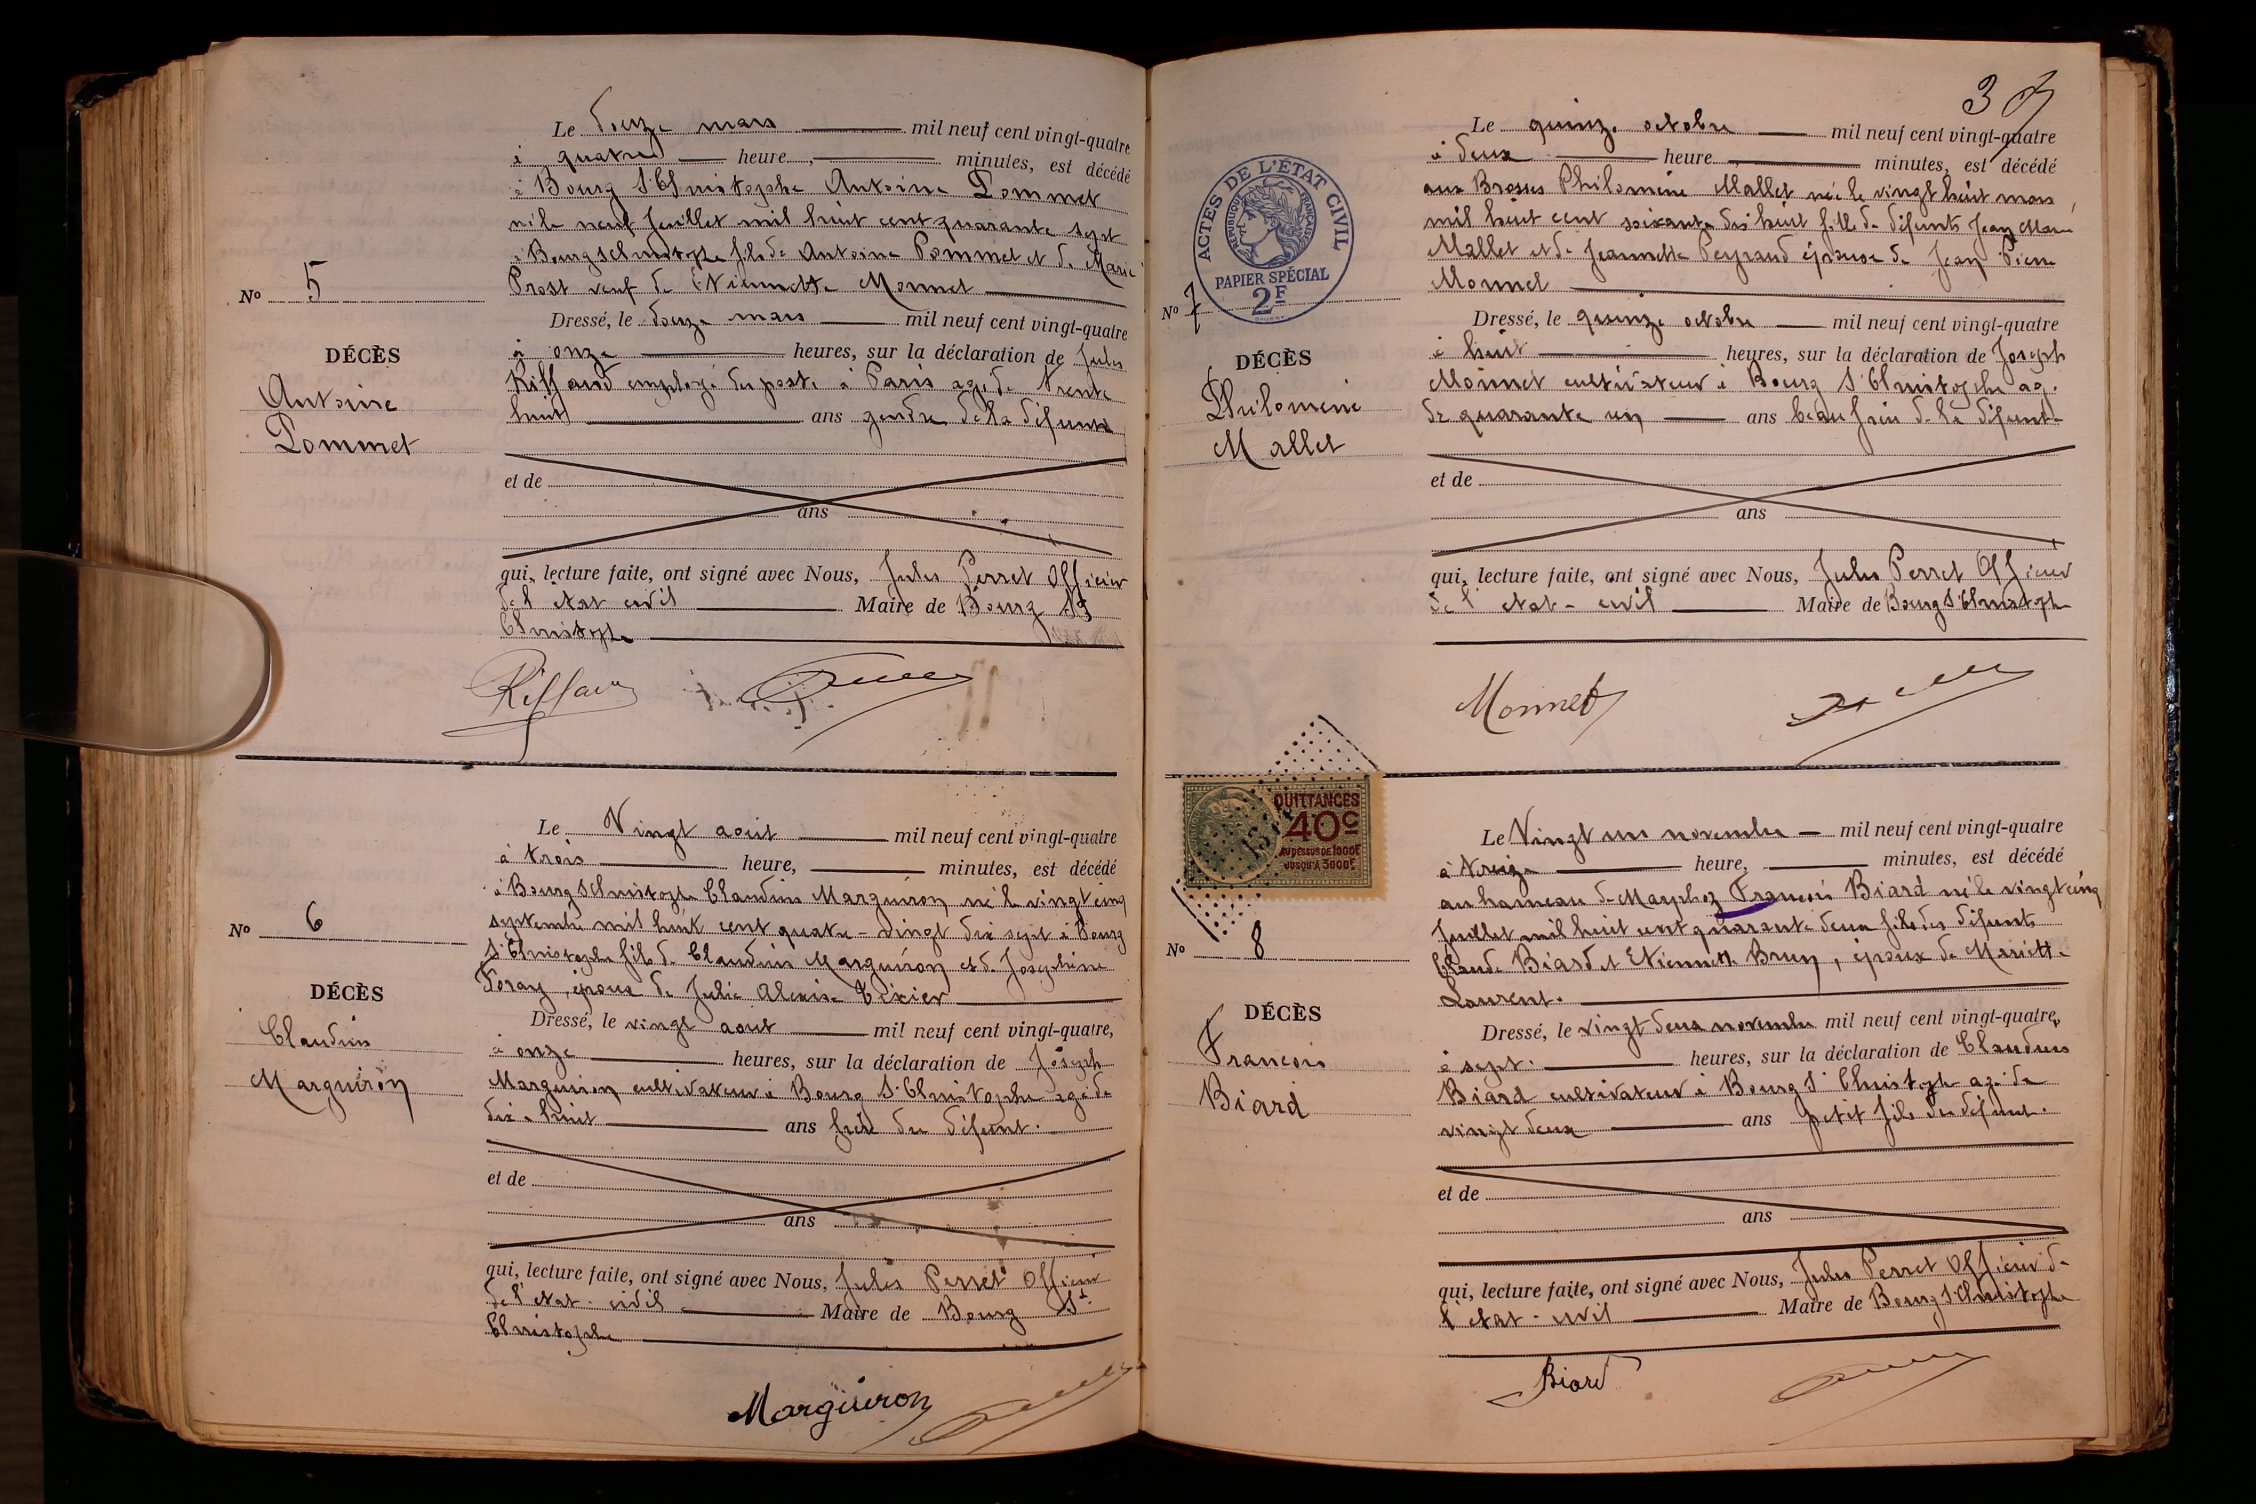 Le douze mars mil neuf cent vingt-quatre
à quatre heure, minutes, est décédé
à Bourg St Christophe Antoine Pommet
né le neuf Juillet mil huit cent quarante sept
à Bourg St Christophe fils de Antoine Pommet et de Marie
Prost veuf de Etiennette Monnet
Dressé, le douze mars mil neuf cent vingt-quatre
à onze heures, sur la déclaration de Jules
Riffard employé des poste à Paris agé de trente
huit ans gendre de la défunte
et de
ans
qui, lecture faite, ont signé avec Nous, Jules Perret Officier
de l'etat civil Maire de Bourg St
Christophe
No 5
DÉCÈS
Antoine
Pommet
Le Vingt aout mil neuf cent vingt-quatre
à trois heure, minutes, est décédé
à Bourg St Christophe Claudius Marguiron né le vingt cinq
septembre mil huit cent quatre-vingt dix sept à Bourg
St Christophe fils de Claudius Marguiron et de Joséphine
Foray, époux de Julie Alexis Tixier
Dressé, le vingt aout mil neuf cent vingt-quatre,
à onze heures, sur la déclaration de Joseph
Marguiron cultivateur à Bourg St Christophe agé de
dix-huit ans frère du défunt.
et de
ans
qui, lecture faite, ont signé avec Nous, Jules Perret Officier
de l'etat-civil Maire de Bourg St
Christophe
Marguiron
No 6
DÉCÈS
Claudius
Marguiron
Le quinze octobre mil neuf cent vingt-quatre
à deux heure minutes, est décédé
aux Brosses Philomène Mallet née le vingt huit mars
mil huit cent soixante dix huit fille de défunts Jean Marie
Mallet et de Jeannette Peyraud épouse de Jean Pierre
Monnet
Dressé, le quinze octobre mil neuf cent vingt-quatre
à huit heures, sur la déclaration de Joseph
Monnet cultivateur à Bourg St Christophe agé
de quarante un ans beau frère de la défunte
et de
ans
qui, lecture faite, ont signé avec Nous, Jules Perret Officier
de l'etat-civil Maire de Bourg St Christophe
Monnet
ACTES DE L'ÉTAT CIVIL
RÉPUBLIQUE FRANÇAISE
PAPIER SPÉCIAL
2F
No 7
DÉCÈS
Philomène
Mallet
QUITTANCES
40c
AU DESSUS DE 1000F
JUSQU'À 3000F
Le Vingt un novembre mil neuf cent vingt-quatre
à treize heure, minutes, est décédé
au hameau de Marphoz François Biard né le vingt cinq
Juillet mil huit cent quarante deux fils des défunts
Claude Biard et Etiennette Brun, époux de Mariette
Laurent.
Dressé, le vingt deux novembre mil neuf cent vingt-quatre,
à sept. heures, sur la déclaration de Claudius
Biard cultivateur à Bourg St Christophe agé de
vingt deux ans petit fils du défunt.
et de
ans
qui, lecture faite, ont signé avec Nous, Jules Perret Officier de
l'etat-civil Maire de Bourg St Christophe
Biard
No 8
DÉCÈS
François
Biard